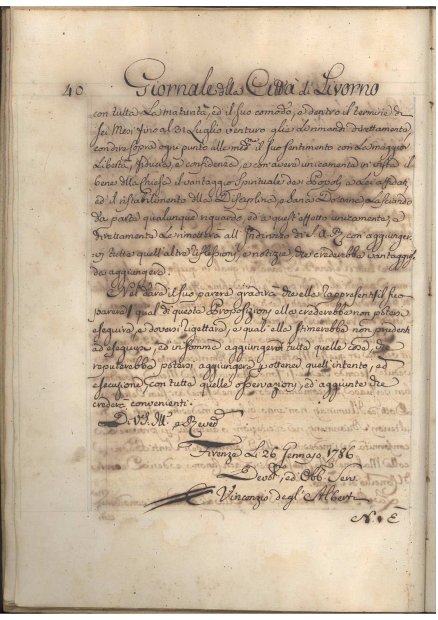 40 Giornale della Città di Livorno
con tutta la maturità, ed il suo comodo, e dentro il termine di
sei Mesi fino al 31 Luglio venturo glie li rimandi direttamente
con dire sopra ogni punto alle med. il suo sentimento con la maggior
Libertà, fiducia, e confidenza, e con avere unicamente in vista il
bene della Chiesa il vantaggio Spirituale dei Popoli, a Lei affidati,
ed il ristabilimento della Disciplina, e sana Dottrina, lasciando
da parte qualunque riguardo, ed a quest'effetto unicamente, e
direttamente le rimetterà all'Indirizzo di S. A. R. con aggiunger
vi tutte quell'altre riflessioni, e notizie, che crederebbe vantaggiose
da aggiungere.
Nel dare il suo parere gradirà che ella rappresenti il suo
parere, qual di queste Proposizioni ella crederebbe non potersi
eseguire, e doversi rigettare, e qual'ella stimerebbe non prudenti
ad eseguire, ed in somma aggiungere tutte quelle cose, che
reputerebbe potersi aggiungere, e ottener quell'intento, ed
esecuzione, con tutte quelle osservazioni, ed aggiunte che
crederà convenienti.
Di V. S. Ill. e Rev.
Firenze Li 26 Gennaio 1786
Devot. ed Obb. Serv.
Vincenzio degl'Alberti
N. E